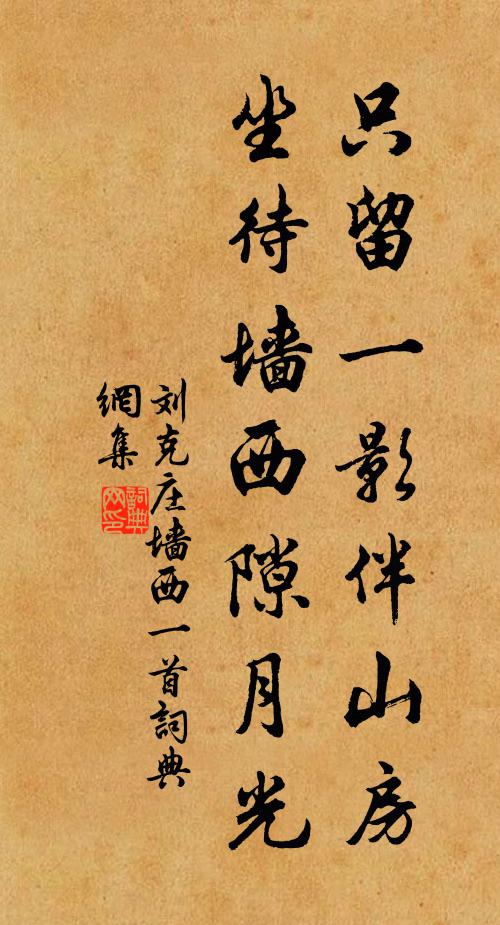 只留一影伴山房
坐待墙西隙月光
刘克庄墙西一首詞典
網集
詞典
网印